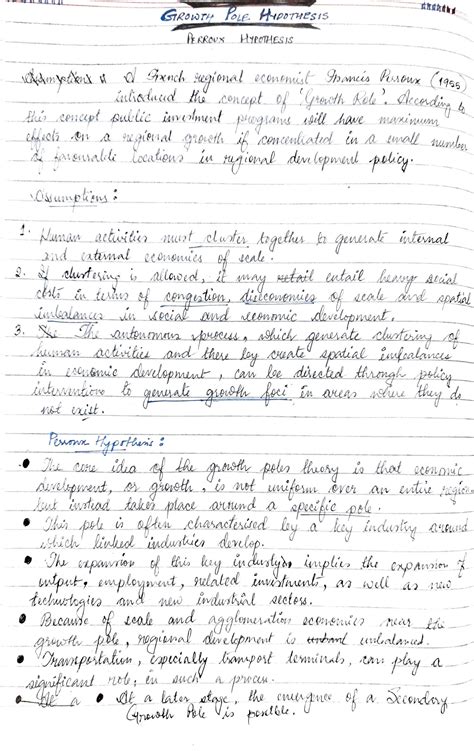 GROWTH POLE HYPOTHESIS
PERROUX HYPOTHESIS
A French regional economist Francis Perroux (1955)
introduced the concept of 'Growth Pole'. According to
this concept public investment programs will have maximum
effects on a regional growth if concentrated in a small number
of favourable locations in regional development policy.
Assumptions :
1. Human activities must cluster together to generate internal
and external economies of scale.
2. If clustering is allowed, it may entail heavy social
costs in terms of congestion, diseconomies of scale and spatial
imbalances in social and economic development.
3. The autonomous process, which generate clustering of
human activities and there by create spatial imbalances
in economic development, can be directed through policy
interventions to generate growth foci in areas where they do
not exist.
Perroux Hypothesis :
• The core idea of the growth poles theory is that economic
development, or growth, is not uniform over an entire region
but instead takes place around a specific pole.
• This pole is often characterised by a key industry around
which linked industries develop.
• The expansion of this key industry implies the expansion of
output, employment, related investments, as well as new
technologies and new industrial sectors.
• Because of scale and agglomeration economies near the
growth pole, regional development is unbalanced.
• Transportation, especially transport terminals, can play a
significant role in such a process.
• At a later stage, the emergence of a Secondary
Growth Pole is possible.